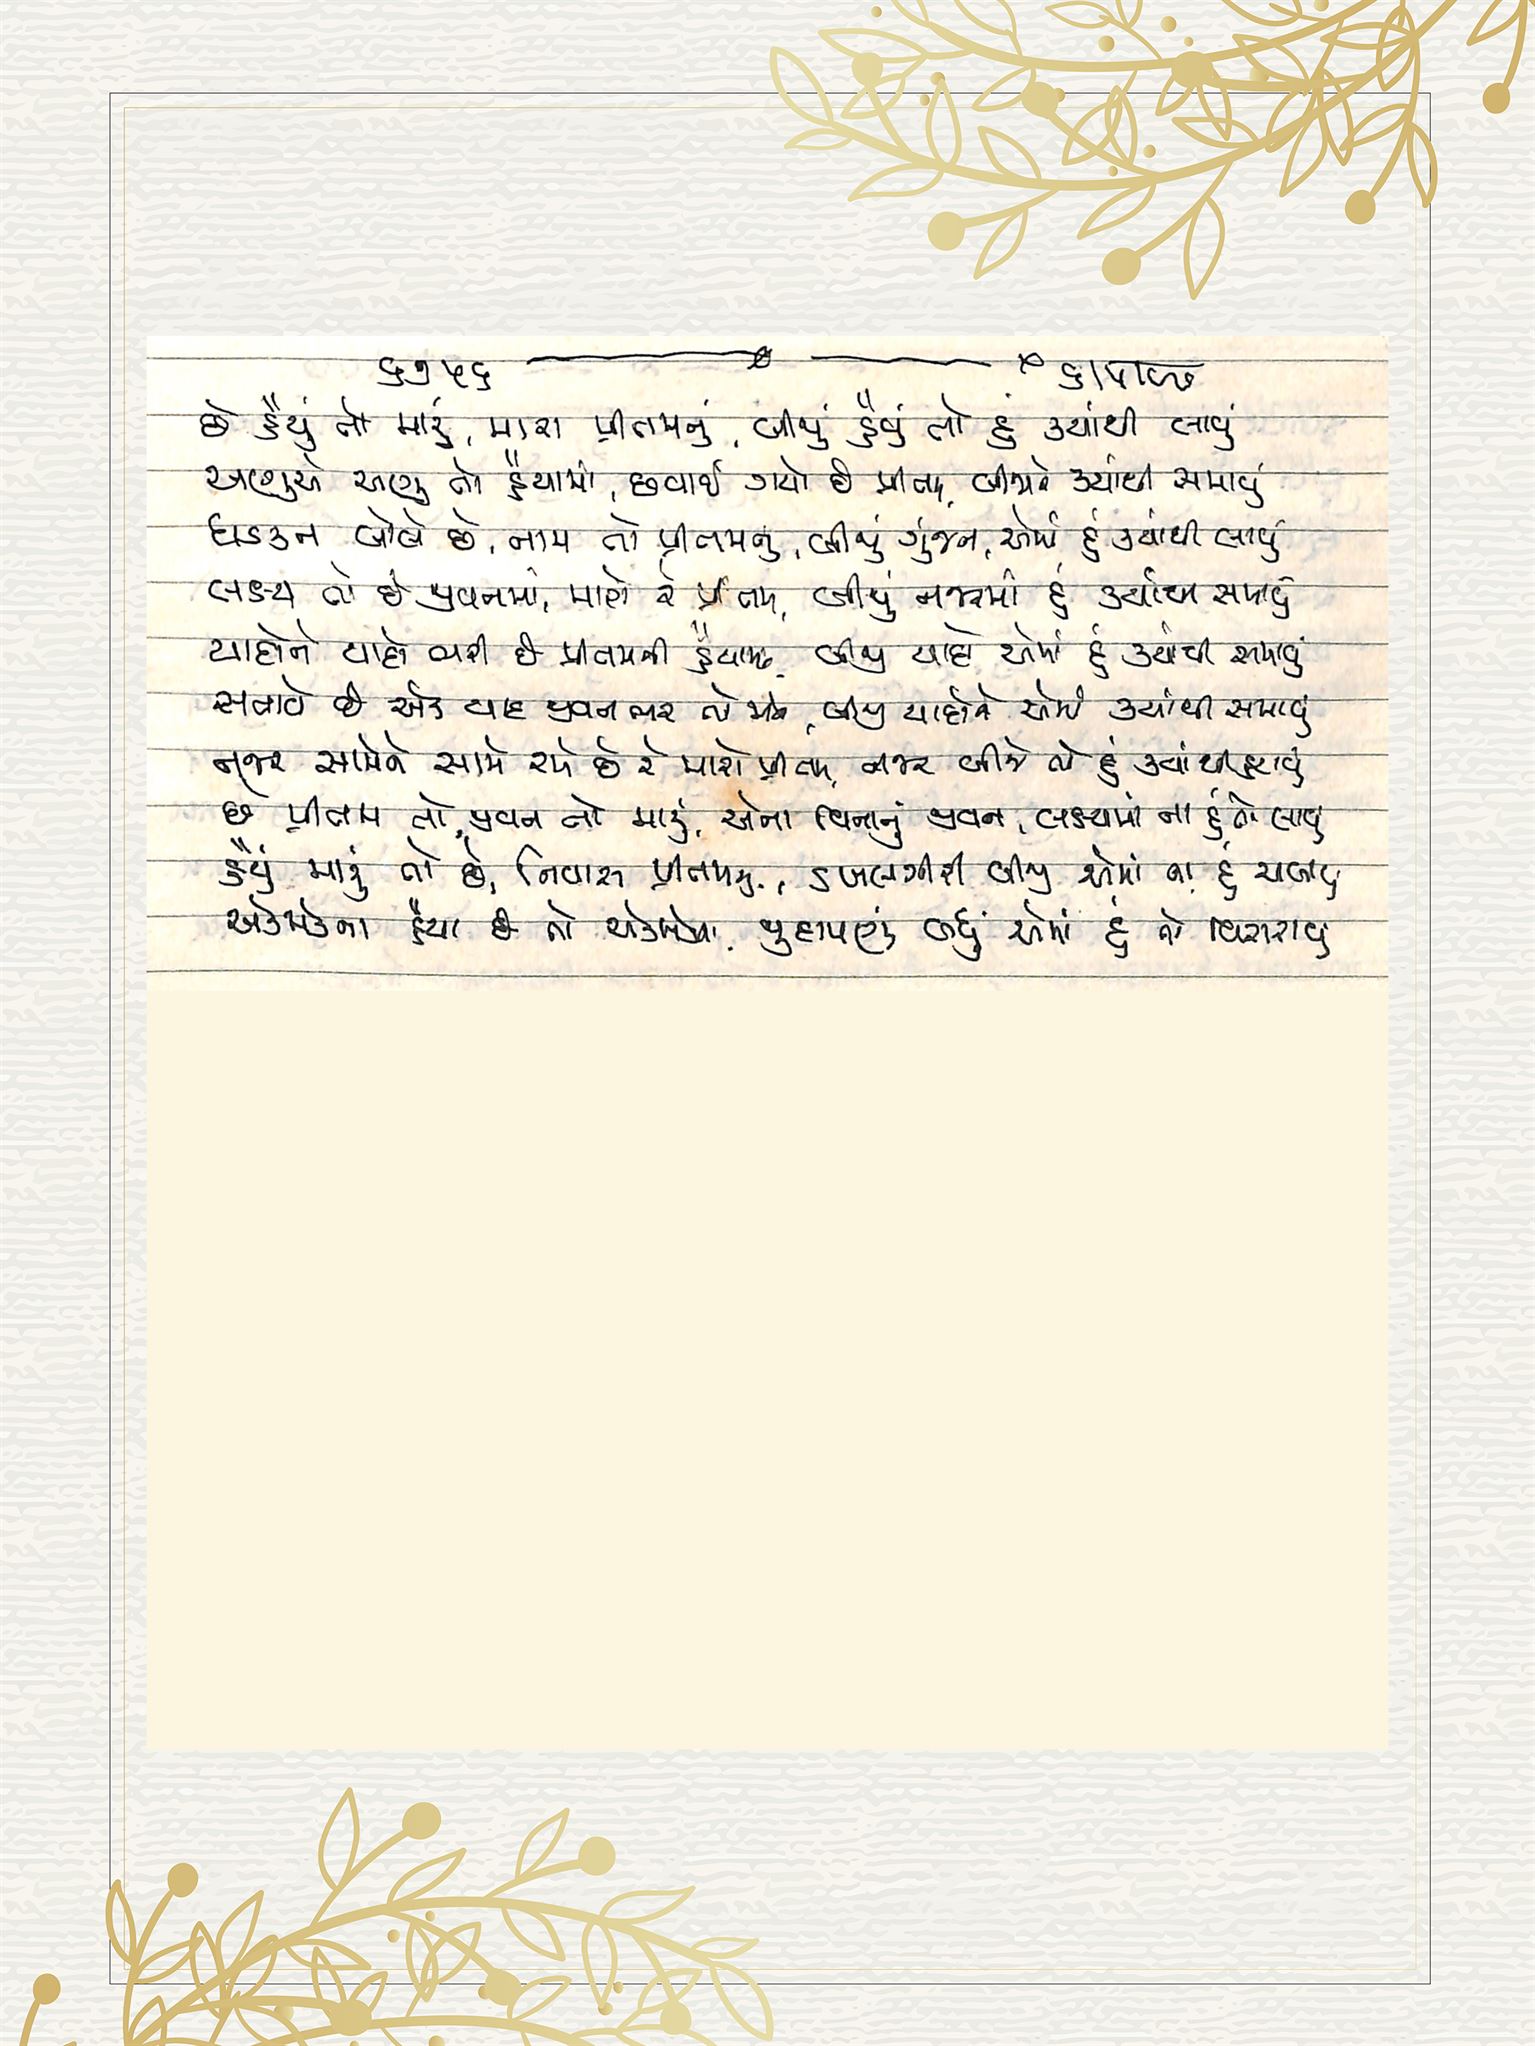 ૬૧૫૬ ૬/૫/૯૬
છે હૈયું તો મારું, મારા પ્રીતમનું, બીજું હૈયું તો હું ક્યાંથી લાવું
અણુએ અણુ તો હૈયામાં, છવાઈ ગયો છે પ્રીતમ, બીજાને ક્યાંથી સમાવું
ધડકન બોલે છે, નામ તો પ્રીતમનું, બીજું ગુંજન, એમાં હું ક્યાંથી લાવું
લક્ષ્ય તો છે જીવનમાં, મારો રે પ્રીતમ, બીજું નજરમાં હું ક્યાંથી સમાવું
યાદોને યાદો ભરી છે પ્રીતમની હૈયામાં, બીજી યાદો એમાં હું ક્યાંથી સમાવું
સતાવે છે એક યાદ જીવનભર તો મને, બીજી યાદોને એમાં ક્યાંથી સમાવું
નજર સામેને સામે રમે છે રે મારો પ્રીતમ, નજર બીજે તો હું ક્યાંથી
છે પ્રીતમ તો જીવન તો મારું, એના વિનાનું જીવન, લક્ષ્યમાં ના હું તો લાવું
હૈયું મારું તો છે, નિવાસ પ્રીતમનું, દખલગીરી બીજી એમાં ના હું ચલાવું
એકમેકના હૈયા છે તો એકમેકમાં, જુદાપણું બધું એમાં હું તો વિસરાવું